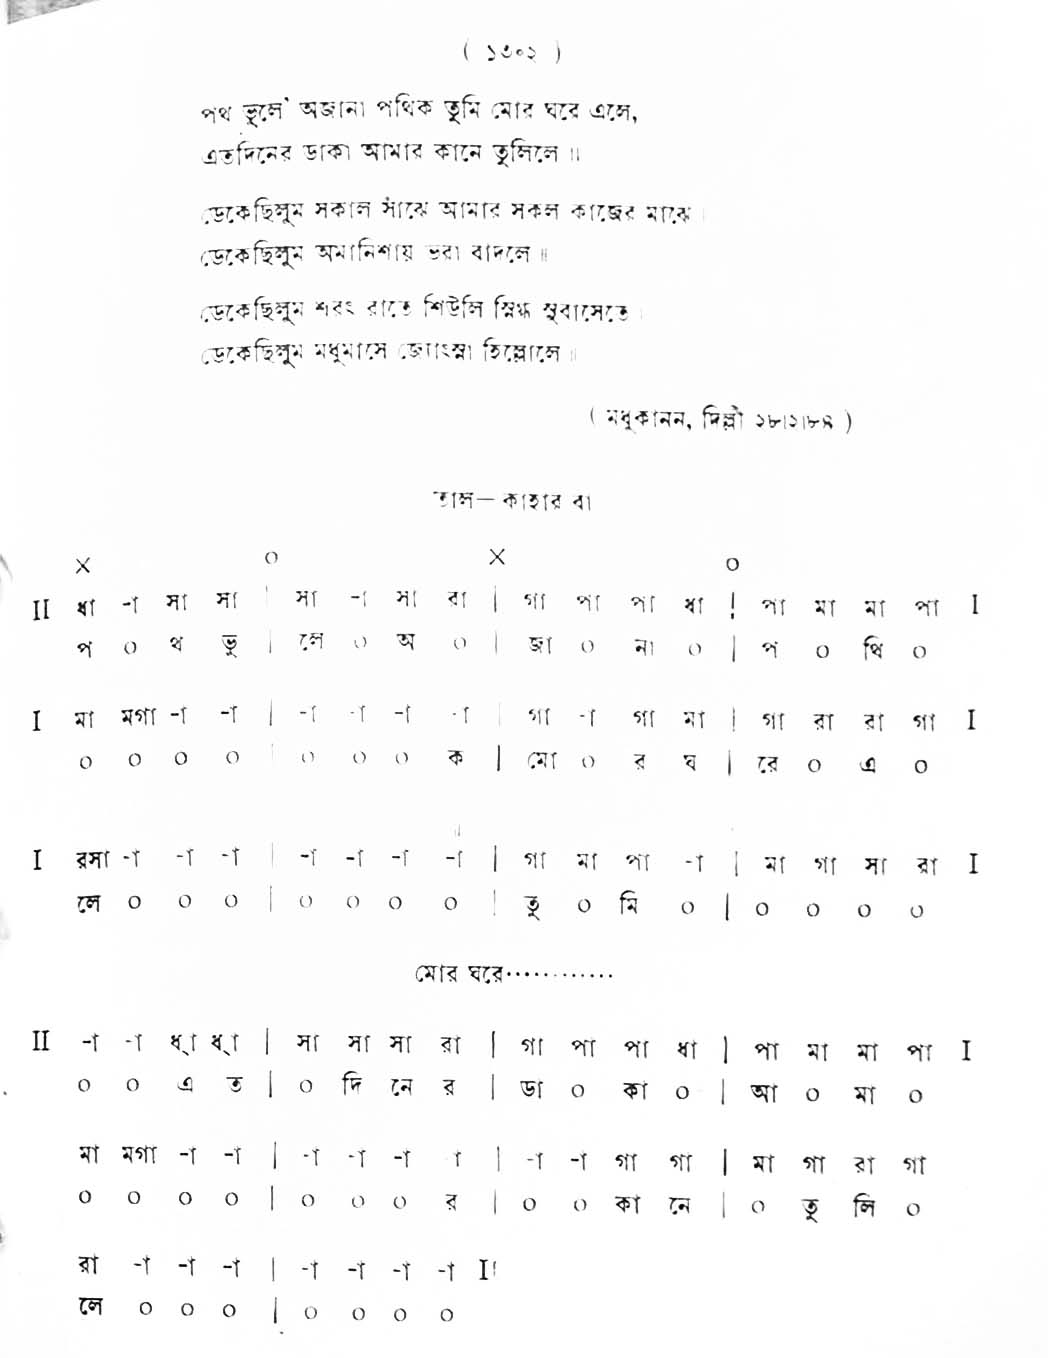 ( ১৩০২ )
পথ ভুলে' অজানা পথিক তুমি মোর ঘরে এলে,
এতদিনের ডাকা আমার কানে তুলিলে ॥
ডেকেছিলুম সকাল সাঁঝে আমার সকল কাজের মাঝে ।
ডেকেছিলুম অমানিশায় ভরা বাদলে ॥
ডেকেছিলুম শরৎ রাতে শিউলি স্নিগ্ধ সুবাসেতে ।
ডেকেছিলুম মধুমাসে জ্যোৎস্না হিল্লোলে ॥
( মধুকানন, দিল্লী ২৮।২।৮৪ )
তাল— কাহার বা
X ০ X ০
II ধা -া সা সা | সা -া সা রা | গা পা পা ধা | পা মা মা পা I
প ০ থ ভু | লে ০ অ ০ | জা ০ না ০ | প ০ থি ০
I মা মগা -া -া | -া -া -া -া | গা -া গা মা | গা রা রা গা I
০ ০ ০ ০ | ০ ০ ০ ক | মো ০ র ঘ | রে ০ এ ০
I রসা -া -া -া | -া -া -া -া | গা মা পা -া | মা গা সা রা I
লে ০ ০ ০ | ০ ০ ০ ০ | তু ০ মি ০ | ০ ০ ০ ০
মোর ঘরে............
II -া -া ধ্া ধ্া | সা সা সা রা | গা পা পা ধা | পা মা মা পা I
০ ০ এ ত | ০ দি নে র | ডা ০ কা ০ | আ ০ মা ০
মা মগা -া -া | -া -া -া া | -া -া গা গা | মা গা রা গা
০ ০ ০ ০ | ০ ০ ০ র | ০ ০ কা নে | ০ তু লি ০
রা -া -া -া | -া -া -া -া II
লে ০ ০ ০ | ০ ০ ০ ০